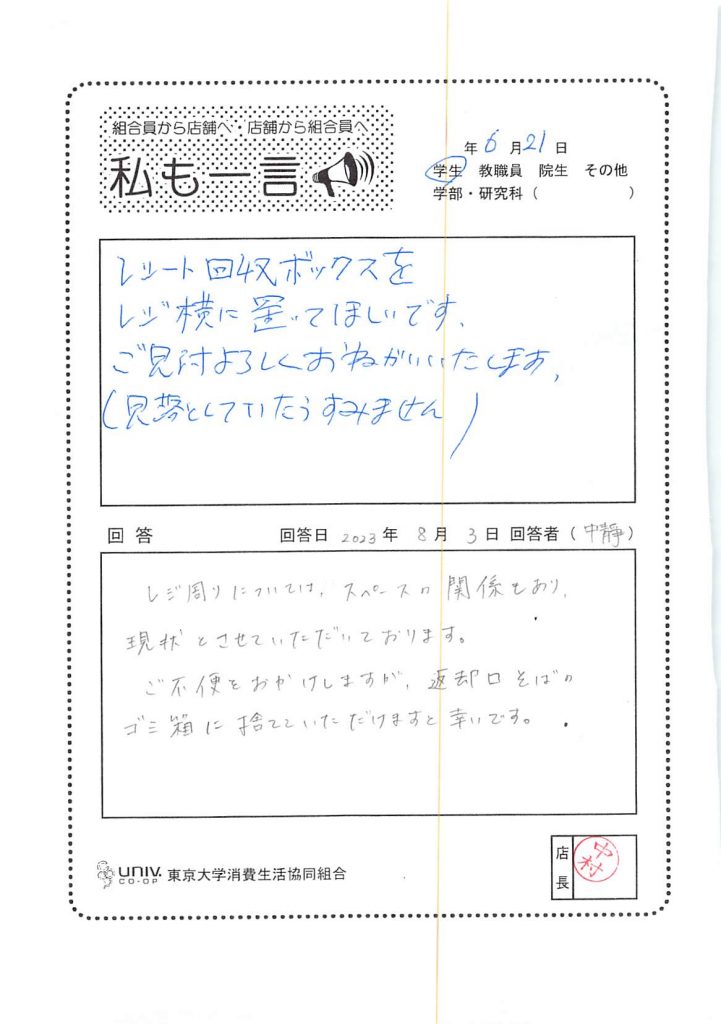 組合員から店舗へ・店舗から組合員へ
私も一言
年 6 月 21 日
学生 教職員 院生 その他
学部・研究科（ ）
レシート回収ボックスを
レジ横に置いてほしいです、
ご見討よろしくおねがいいたします、
（見落としていたらすみません）
回 答 回答日 2023 年 8 月 3 日 回答者（中靜）
レジ周りについては、スペースの関係もあり、
現状とさせていただいております。
ご不便をおかけしますが、返却口そばの
ゴミ箱に捨てていただけますと幸いです。
UNIV. CO-OP 東京大学消費生活協同組合
店長 中村